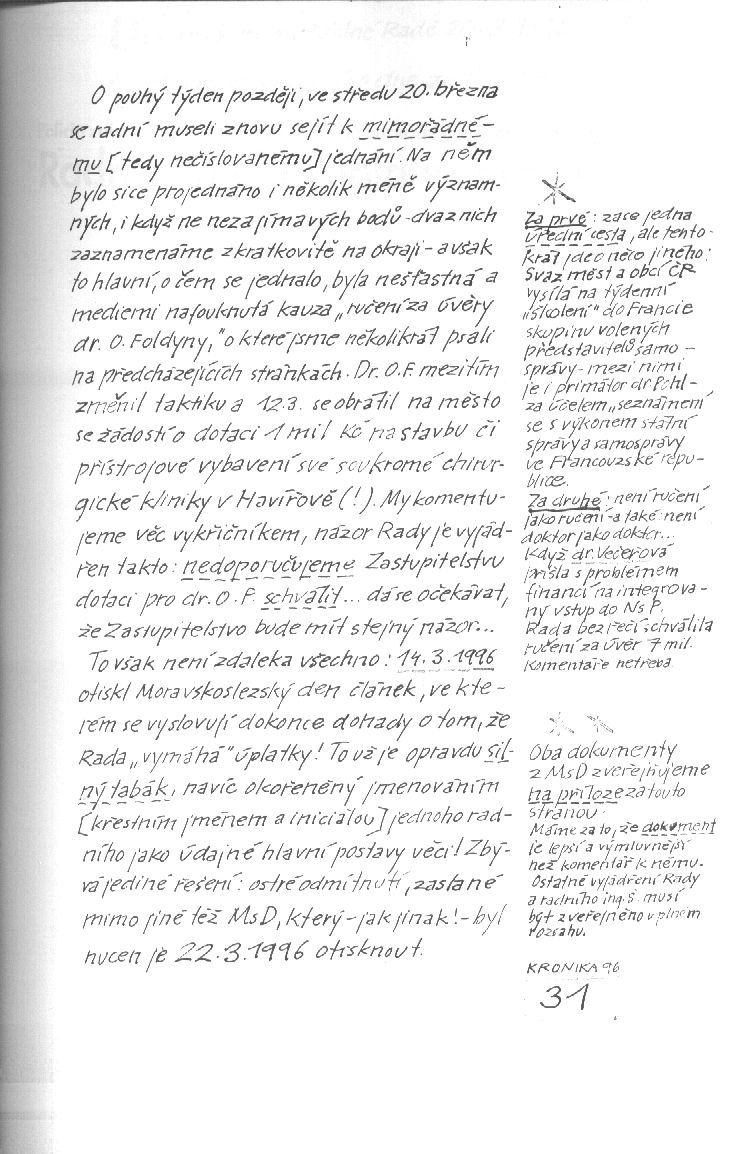 O pouhý týden později, ve středu 20. března
se radní museli znovu sejít k mimořádné-
mu [tedy nečíslovanému] jednání. Na něm
bylo sice projednáno i několik méně význam-
ných, i když ne nezajímavých bodů - dva z nich
zaznamenáme zkratkovitě na okraji - avšak
to hlavní, o čem se jednalo, byla nešťastná a
mediemi nafouknutá kauza „ručení za úvěry
dr. O. Foldyny," o které jsme několikrát psali
na předcházejících stránkách. Dr. O.F. mezitím
změnil taktiku a 12.3. se obrátil na město
se žádostí o dotaci 1 mil Kč na stavbu či
přístrojové vybavení své soukromé chirur-
gické kliniky v Havířově (!). My komentu-
jeme věc vykřičníkem, názor Rady je vyjád-
řen takto: nedoporučujeme Zastupitelstvu
dotaci pro dr. O. F. schválit... dá se očekávat,
že Zastupitelstvo bude mít stejný názor...
To však není zdaleka všechno: 14.3.1996
otiskl Moravskoslezský den článek, ve kte-
rém se vyslovují dokonce dohady o tom, že
Rada „vymáhá" úplatky! To už je opravdu sil-
ný tabák, navíc okořeněný jmenováním
[křestním jménem a iniciálou] jednoho rad-
ního jako údajné hlavní postavy věci! Zbý-
vá jediné řešení: ostré odmítnutí, zaslané
mimo jiné též MsD, který - jak jinak! - byl
nucen je 22.3.1996 otisknout.
Za prvé: zase jedna
úřední cesta, ale tento-
krát jde o něco jiného:
Svaz měst a obcí ČR
vysílá na týdenní
„školení" do Francie
skupinu volených
představitelů samo-
správy - mezi nimi
je i primátor dr. Pchl-
za účelem „seznámení
se s výkonem státní
správy a samosprávy
ve Francouzské repu-
blice.
Za druhé: není ručení
jako ručení - a také není
doktor jako doktor...
Když dr. Večeřová
přišla s problémem
financí na integrova-
ný vstup do NsP,
Rada bez řečí schválila
ručení za úvěr 7 mil.
Komentáře netřeba.
Oba dokumenty
z MsD zveřejňujeme
na příloze za touto
stranou.
Máme za to, že dokument
je lepší a výmluvnější
než komentář k němu.
Ostatně vyjádření Rady
a radního ing. Š. musí
být zveřejněno v plném
rozsahu.
KRONIKA 96
31